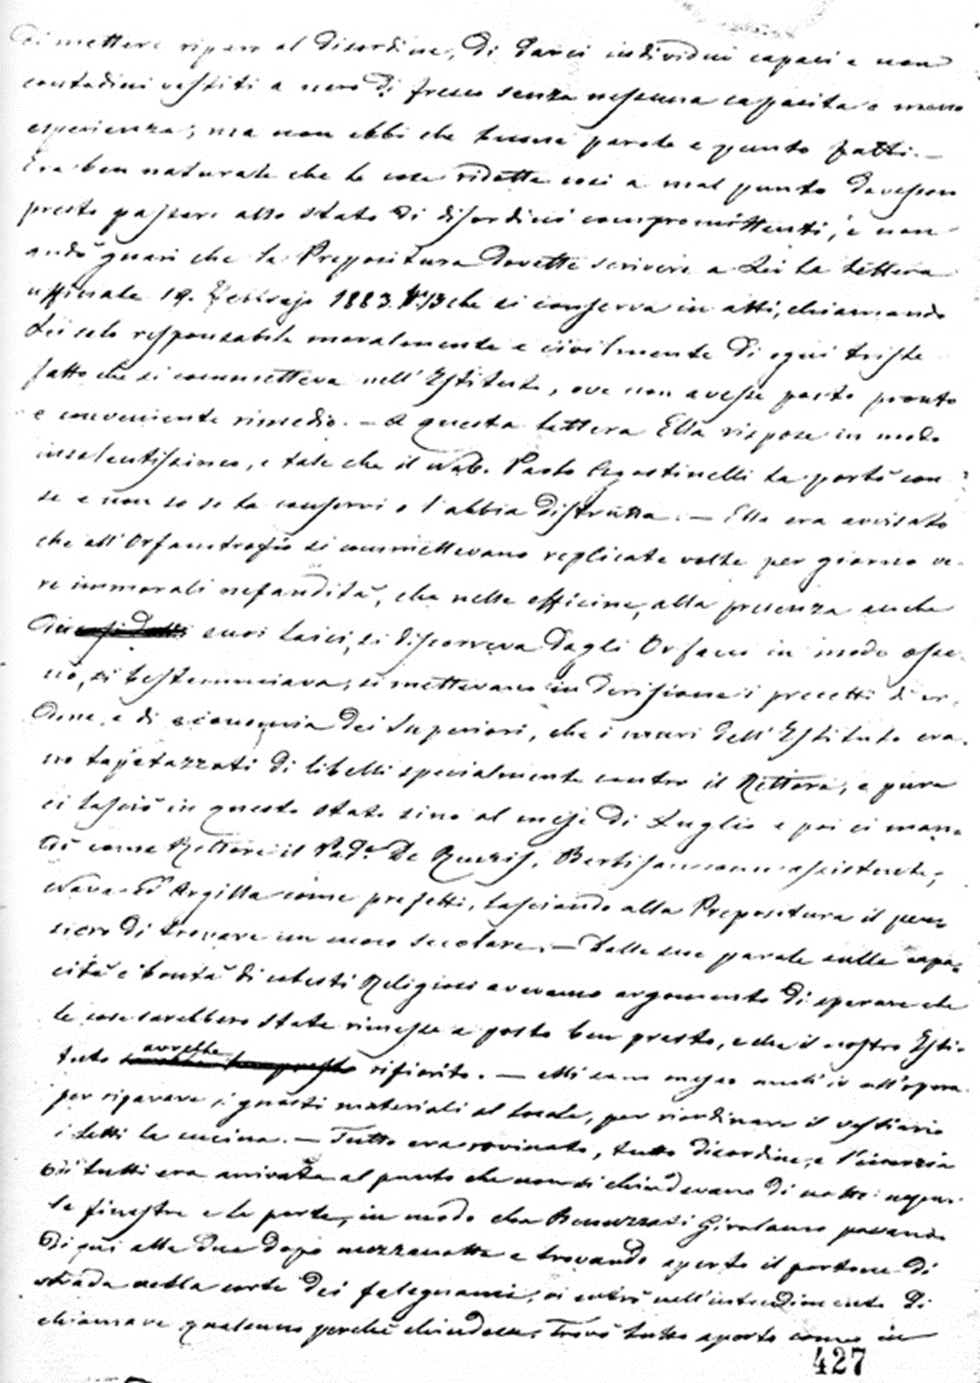 di mettere riparo al disordine, di darci individui capaci e non
contadini vestiti a nero di fresco senza nessuna capacità e meno
esperienza; ma non ebbi che buone parole e punto fatti. —
Era ben naturale che le cose ridotte così a mal punto dovessero
presto passare allo stato di disordini compromittenti, e non
andò guari che la Prepositura dovette scrivere a Lei la lettera
ufficiale 19. Febbrajo 1883. N. 13 che si conserva in atti, chiamando
Lei solo responsabile moralmente e civilmente di ogni triste
fatto che si commetteva nell'Istituto, ove non avesse posto pronto
e conveniente rimedio. — A questa lettera Ella rispose in modo
insolentissimo, e tale che il Nob. Paolo Agostinelli la portò con
se e non so se la conservi o l'abbia distrutta. — Ella era avvisato
che all'Orfanotrofio si commettevano replicate volte per giorno ve-
re immorali nefandità, che nelle officine, alla presenza anche
dei suoi laici, si discorreva dagli Orfani in modo osce-
no, si bestemmiava, si mettevano in derisione i precetti di or-
dine, e di economia dei Superiori, che i muri dell'Istituto era-
no tapetazzati di libelli specialmente contro il Rettore, e pure
ci lasciò in questo stato sino al mese di Luglio e poi ci man-
dò come Rettore il Pad.e De Rocchis, assistente,
Nava ed Argilla come prefetti, lasciando alla Prepositura il pen-
siero di trovare un secolare. — Dalle sue parole sulla capa-
cità e bontà di cotesti Religiosi avevamo argomento di sperare che
le cose sarebbero state rimesse a posto ben presto, e che il nostro Isti-
tuto avrebbe rifiorito. — Mi sono messo anch'io all'opera
per riparare i guasti materiali al locale, per riordinare il vestiario
i letti la cucina. — Tutto era rovinato, tutto disordine, e l'inerzia
di tutti era arrivata al punto che non si chiudevano di notte neppur
le finestre e le porte, in modo che Girolamo passando
di qui alle due dopo mezzanotte e trovando aperto il portone di
strada nella corte dei falegnami, vi entrò nell'intendimento di
chiamare qualcuno perchè chiudesse. Trovò tutto aperto come in
427